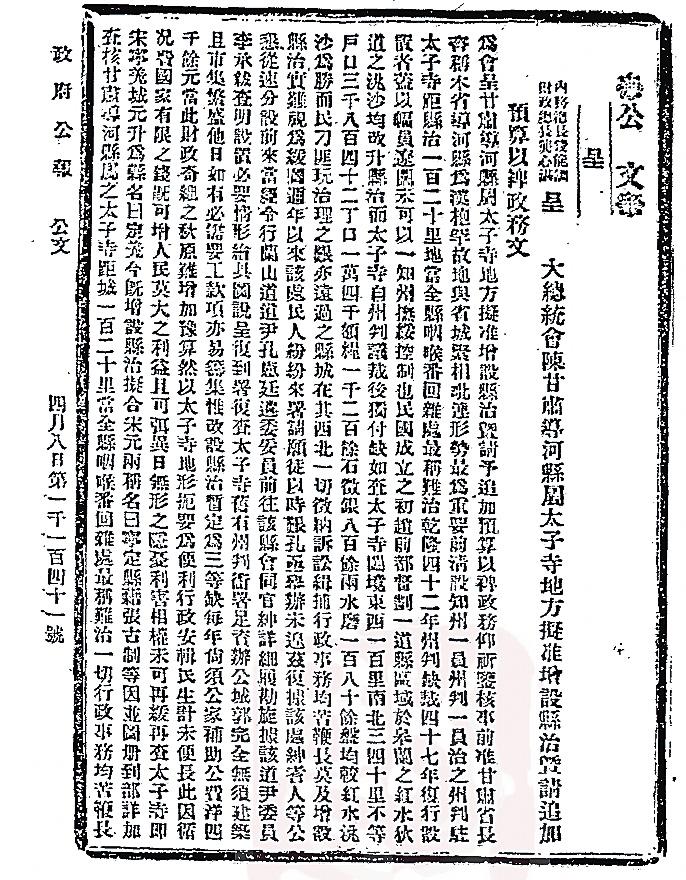 公文
呈
內務總長
財政總長
呈 大總統會陳甘肅導河縣屬太子寺地方擬准增設縣治暨請追加
預算以裨政務文
為會呈甘肅導河縣屬太子寺地方擬准增設縣治暨請予追加預算以裨政務仰祈鑒核事前准甘肅省長
咨稱本省導河縣為漢枹罕故地與省城緊相毗連形勢最為重要前清設知州一員州判一員治之州判駐
太子寺距縣治一百二十里地當全縣咽喉番回雜處最稱難治乾隆四十二年州判缺裁四十七年復行設
置者蓋以幅員遼闊未可以一知州撫綏控制也民國成立之初趙前都督劃一道縣區域於皋蘭之紅水狄
道之洮沙均改升縣治而太子寺自州判議裁後獨付缺如查太子寺區境東西一百里南北三四十里不等
戶口三千八百四十二丁口一萬四千額糧一千二百餘石徵銀八百餘兩水磨一百八十餘盤均較紅水洮
沙為勝而民刁匪玩治理之艱亦遠過之縣城在其西北一切徵納訴訟緝捕行政事務均苦鞭長莫及增設
縣治實難視為緩圖週年以來該處民人紛紛來署請願徒以時艱孔亟舉辦未遑茲復據該處紳耆人等公
懇從速分設前來當經令行蘭山道道尹孔憲廷遴委委員前往該縣會同官紳詳細履勘旋據該道尹委員
李承鈸查明設置必要情形治具圖說呈復到署復查太子寺舊有州判衙署足資辦公城郭完全無須建築
且市集繁盛他日如有必需要工款項亦易籌集惟改設縣治暫定為三等缺每年尚須公家補助公費洋四
千餘元當此財政奇絀之秋原難增加豫算然以太子寺地形扼要為便利行政安輯民生計未便長此因循
況費國家有限之錢既可增人民莫大之利益且可弭異日無形之隱憂利害相權未可再緩再查太子寺即
宋寧羌城元升為縣名曰寧羌今既增設縣治擬合宋元兩稱名曰寧定縣藉張古制等因並圖册到部詳加
查核甘肅導河縣屬之太子寺距城一百二十里當全縣咽喉番回雜處最稱難治一切行政事務均苦鞭長
政府公報 公文 四月八日第一千一百四十一號